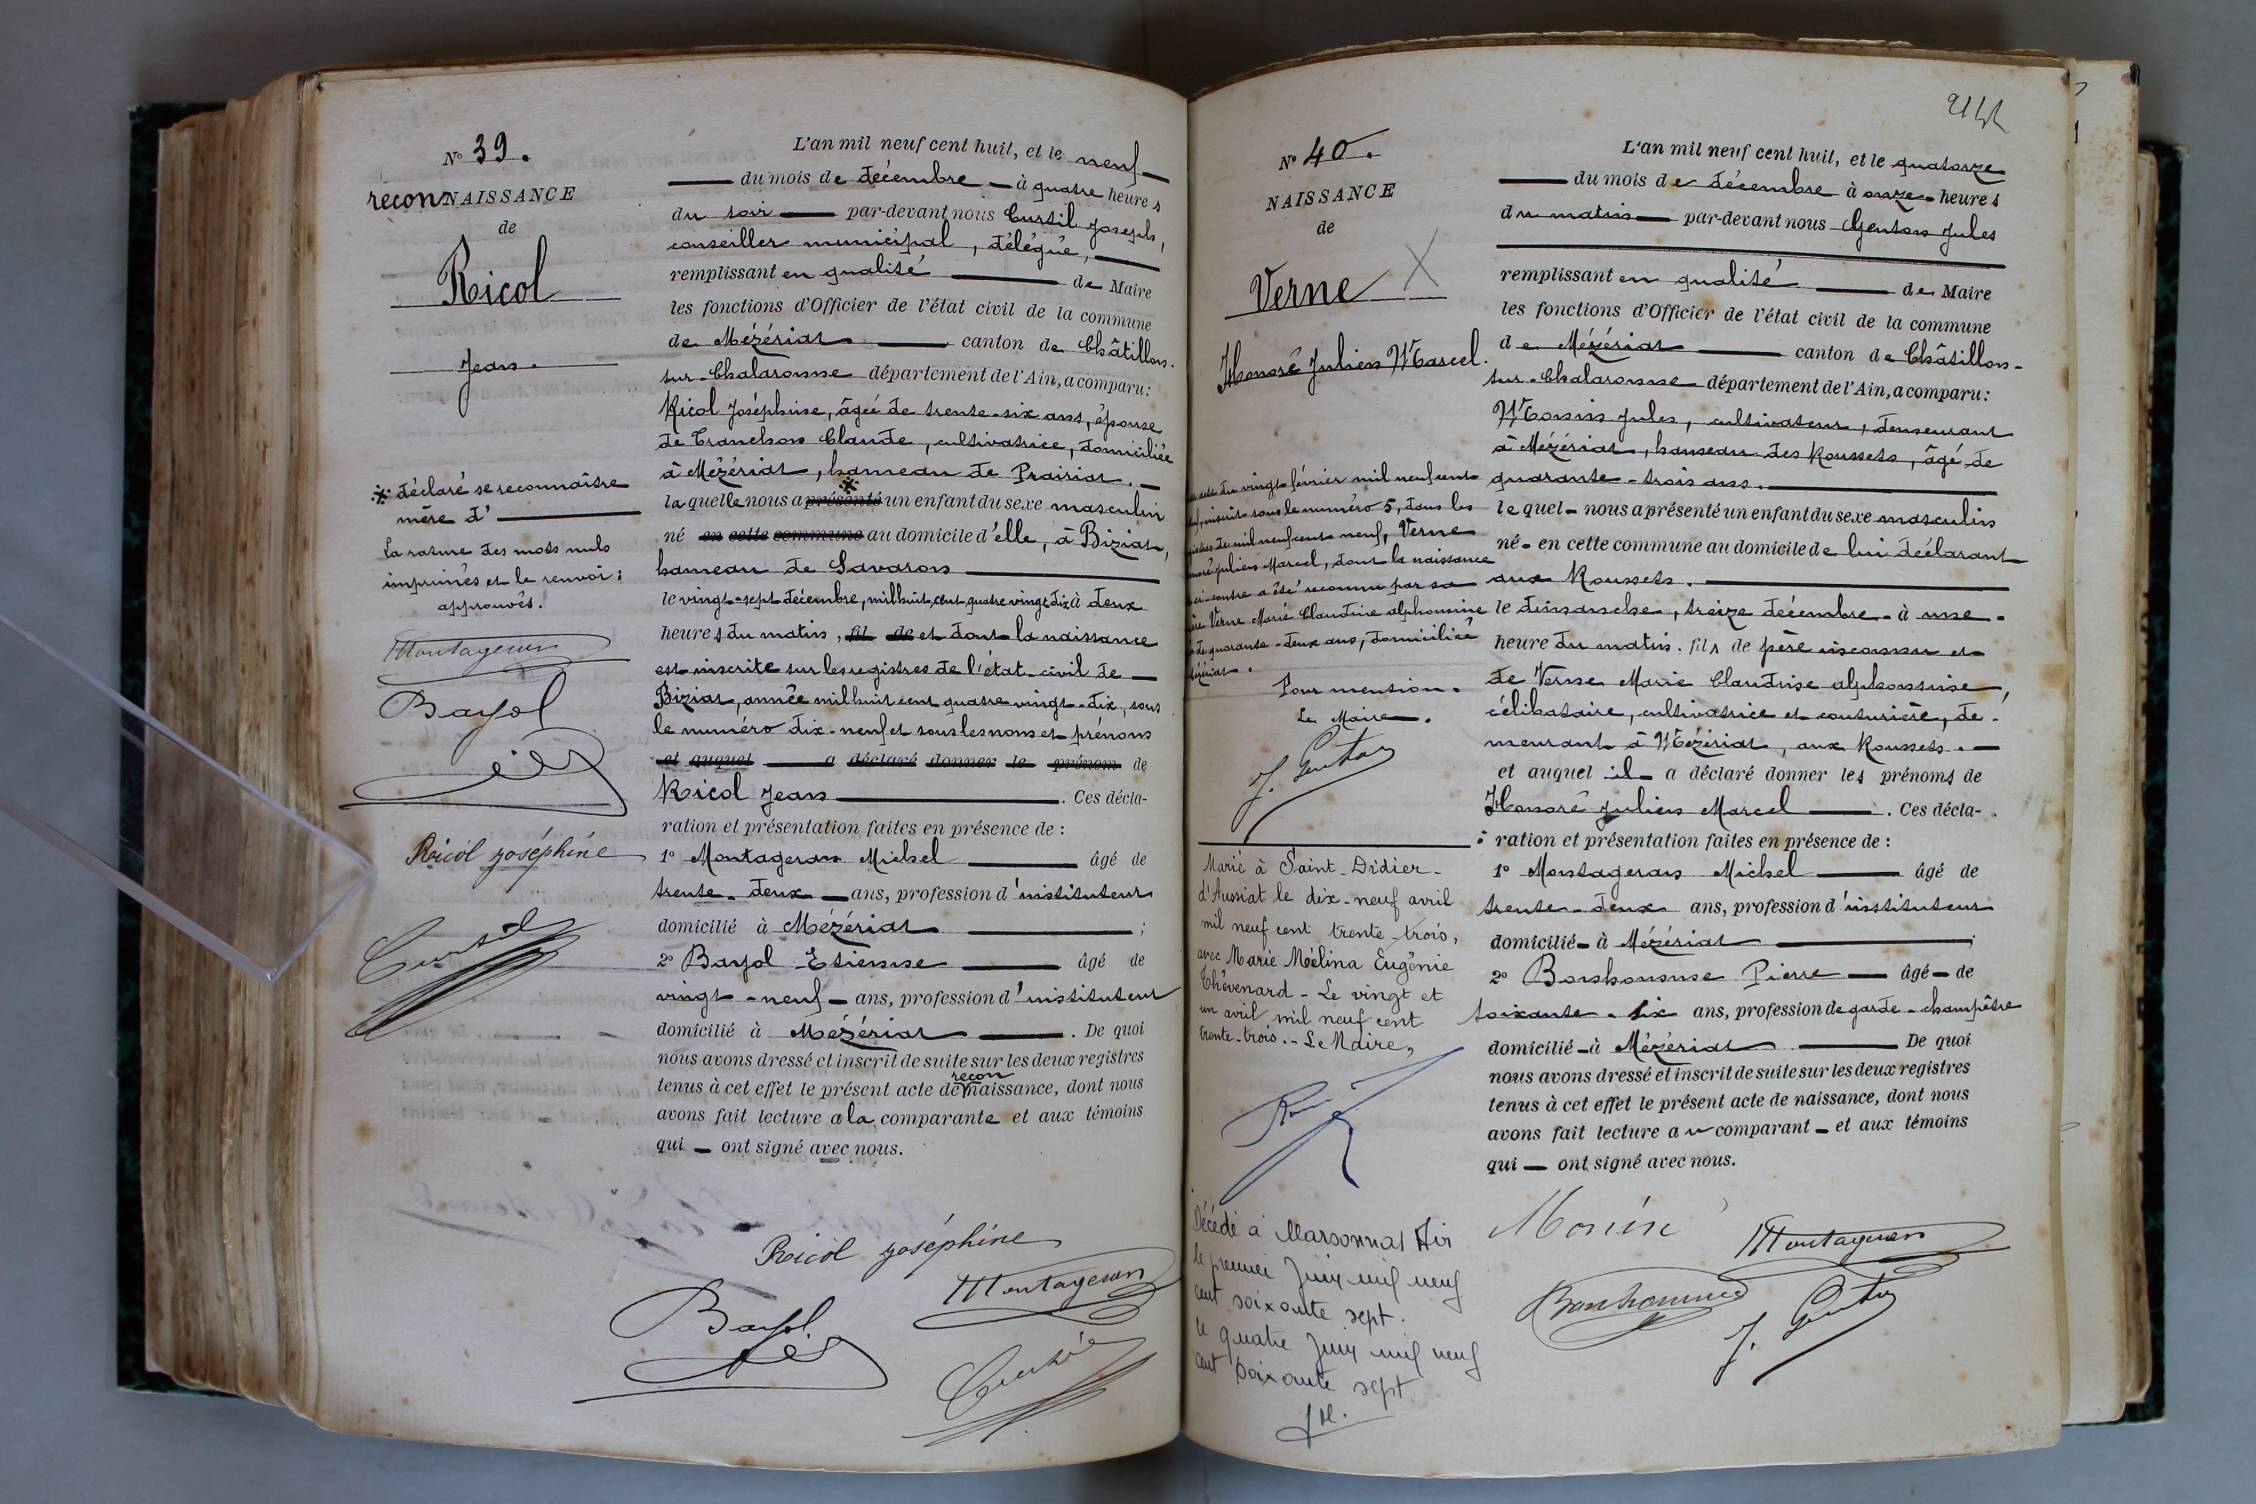 N° 39.
reconNAISSANCE
de
Ricol
Jean.
※ déclaré se reconnaître
mère d'
La rature des mots nuls
imprimés et le renvoi :
approuvés.
Montageron
Bayol
Ricol joséphine
Curtil
L'an mil neuf cent huit, et le neuf
du mois de décembre à quatre heures
du soir par-devant nous Curtil Joseph,
conseiller municipal, délégué,
remplissant en qualité de Maire
les fonctions d'Officier de l'état civil de la commune
de Mézériat canton de Châtillon-
sur-Chalaronne département de l'Ain, a comparu :
Ricol Joséphine, âgée de trente-six ans, épouse
de Tranchon Claude, cultivatrice, domiciliée
à Mézériat, hameau de Prairiat.
※
laquelle nous a présenté un enfant du sexe masculin
né en cette commune au domicile d'elle, à Biziat,
hameau de Savaron
le vingt-sept décembre, mil huit cent quatre vingt dix à deux
heures du matin, fil de et dont la naissance
est inscrite sur les registres de l'état-civil de
Biziat, année mil huit cent quatre vingt-dix, sous
le numéro dix-neuf et sous les nom et prénoms
et auquel a déclaré donner le prénom de
Ricol Jean . Ces décla-
ration et présentation faites en présence de :
1° Montageron Michel âgé de
trente-deux ans, profession d'instituteur
domicilié à Mézériat ;
2° Bayol Etienne âgé de
vingt-neuf ans, profession d'instituteur
domicilié à Mézériat . De quoi
nous avons dressé et inscrit de suite sur les deux registres
recon
tenus à cet effet le présent acte de naissance, dont nous
avons fait lecture a la comparante et aux témoins
qui ont signé avec nous.
Ricol joséphine
Montageron
Bayol
Curtil
N° 40.
NAISSANCE
de
Verne X
Honoré Julien Marcel.
acte du vingt février mil neuf cent
neuf, inscrit sous le numéro 5, dans les
registres de mil neuf cent neuf, Verne
Honoré Julien Marcel, dont la naissance
est ci-contre a été reconnu par sa
mère Verne Marie Claudine alphonsine
de quarante-deux ans, domiciliée
Mézériat.
Pour mention.
Le Maire.
J. Genton
Marié à Saint-Didier-
d'Aussiat le dix-neuf avril
mil neuf cent trente-trois,
avec Marie Mélina Eugénie
Thévenard - Le vingt et
un avril mil neuf cent
trente-trois. - Le Maire,
Décédé à Marsonnas Ain
le premier Juin mil neuf
cent soixante sept.
le quatre Juin mil neuf
cent soixante sept
L'an mil neuf cent huit, et le quatorze
du mois de décembre à onze heures
du matin par-devant nous Genton Jules
remplissant en qualité de Maire
les fonctions d'Officier de l'état civil de la commune
de Mézériat canton de Châtillon-
sur-Chalaronne département de l'Ain, a comparu :
Monin Jules, cultivateur, demeurant
à Mézériat, hameau des Roussets, âgé de
quarante-trois ans.
lequel nous a présenté un enfant du sexe masculin
né en cette commune au domicile de lui déclarant
aux Roussets.
le dimanche, treize décembre à une
heure du matin. fils de père inconnu et
de Verne Marie Claudine alphonsine,
célibataire, cultivatrice et couturière, de-
meurant à Mézériat, aux Roussets.
et auquel il a déclaré donner les prénoms de
Honoré Julien Marcel . Ces décla-
ration et présentation faites en présence de :
1° Montageron Michel âgé de
trente-deux ans, profession d'instituteur
domicilié à Mézériat ;
2° Bonhomme Pierre âgé de
soixante-six ans, profession de garde-champêtre
domicilié à Mézériat De quoi
nous avons dressé et inscrit de suite sur les deux registres
tenus à cet effet le présent acte de naissance, dont nous
avons fait lecture au comparant et aux témoins
qui ont signé avec nous.
Monin
Montageron
Bonhomme
J. Genton